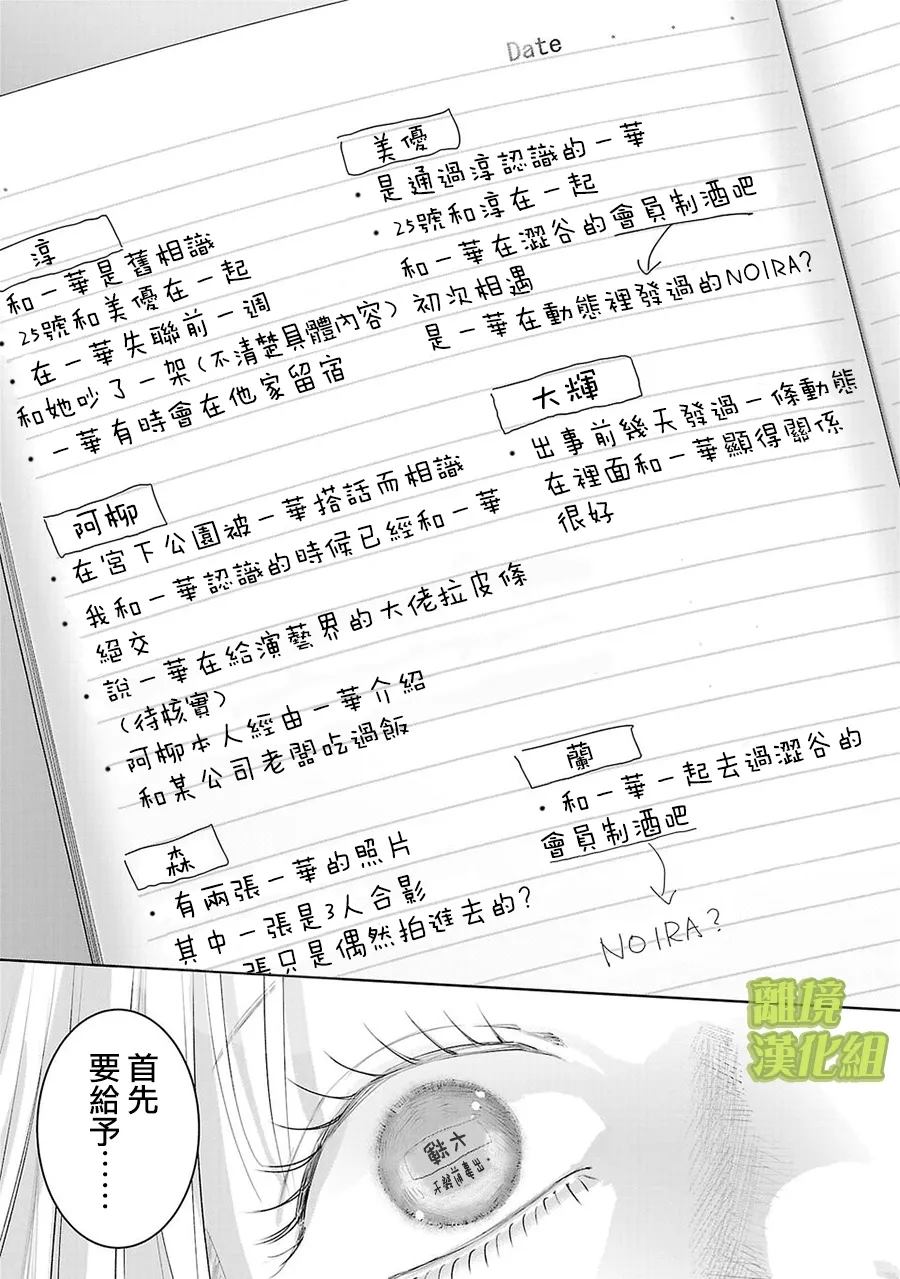 Date
美優
・是通過淳認識的一華
・25號和淳在一起
和一華在澀谷的會員制酒吧
初次相遇
是一華在動態裡發過的NOIRA?
淳
和一華是舊相識
・25號和美優在一起
・在一華失聯前一週
和她吵了一架(不清楚具體內容)
・一華有時會在他家留宿
大輝
・出事前幾天發過一條動態
在裡面和一華顯得關係
很好
阿柳
・在宮下公園被一華搭話而相識
・我和一華認識的時候已經和一華
絕交
・說一華在給演藝界的大佬拉皮條
(待核實)
・阿柳本人經由一華介紹
和某公司老闆吃過飯
蘭
・和一華一起去過澀谷的
會員制酒吧
NOIRA?
森
・有兩張一華的照片
其中一張是3人合影
一張只是偶然拍進去的?
首先
要給予……
大輝
・出事前幾天
離境
漢化組